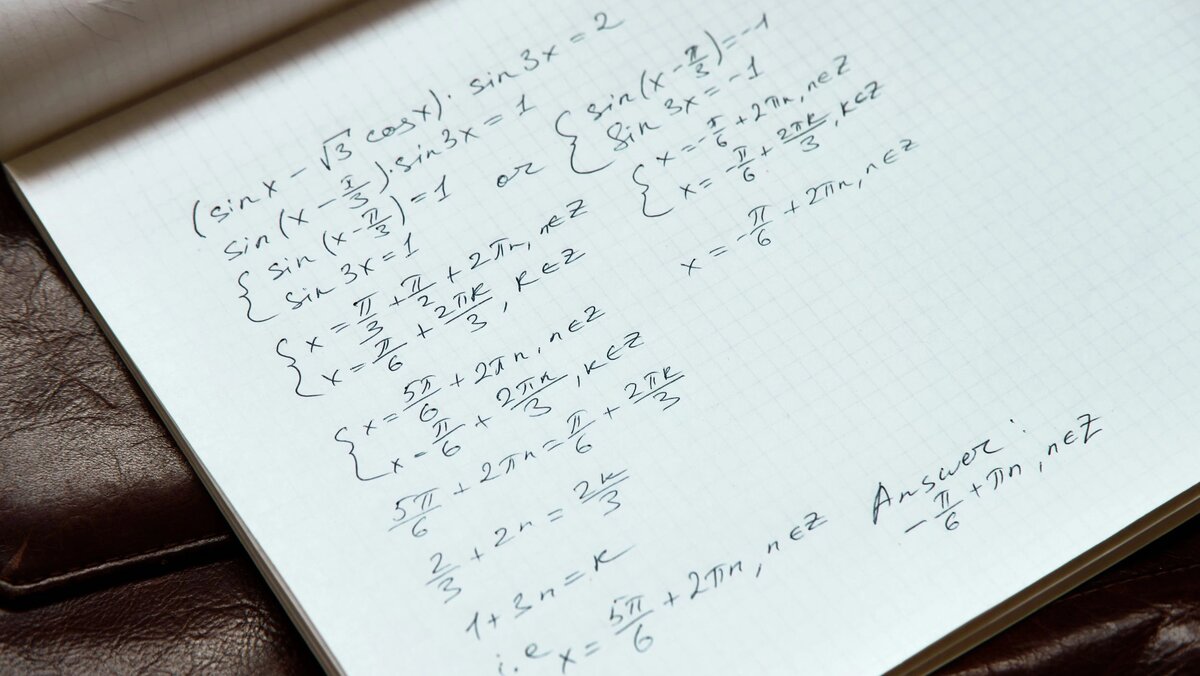 (sin x − √3 cos x) · sin 3x = 2
sin(x − π/3) · sin 3x = 1
{ sin(x − π/3) = 1
sin 3x = 1
or
{ sin(x − π/3) = −1
sin 3x = −1
{ x = π/3 + π/2 + 2πn, n∈Z
x = π/6 + 2πk/3, k∈Z
{ x = 5π/6 + 2πn, n∈Z
x − π/6 + 2πk/3, k∈Z
5π/6 + 2πn = π/6 + 2πk/3
2/3 + 2n = 2k/3
1 + 3n = k
i.e x = 5π/6 + 2πn, n∈Z
{ x = −π/6 + 2πn, n∈Z
x = −π/6 + 2πk/3, k∈Z
x = −π/6 + 2πn, n∈Z
Answer:
−π/6 + πn, n∈Z